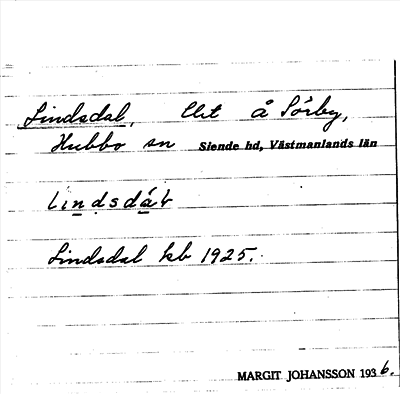 Lindsdal, lht å Sörby,
Hubbo sn Siende hd, Västmanlands län
lindsdál
Lindsdal kb 1925.
MARGIT JOHANSSON 1936.